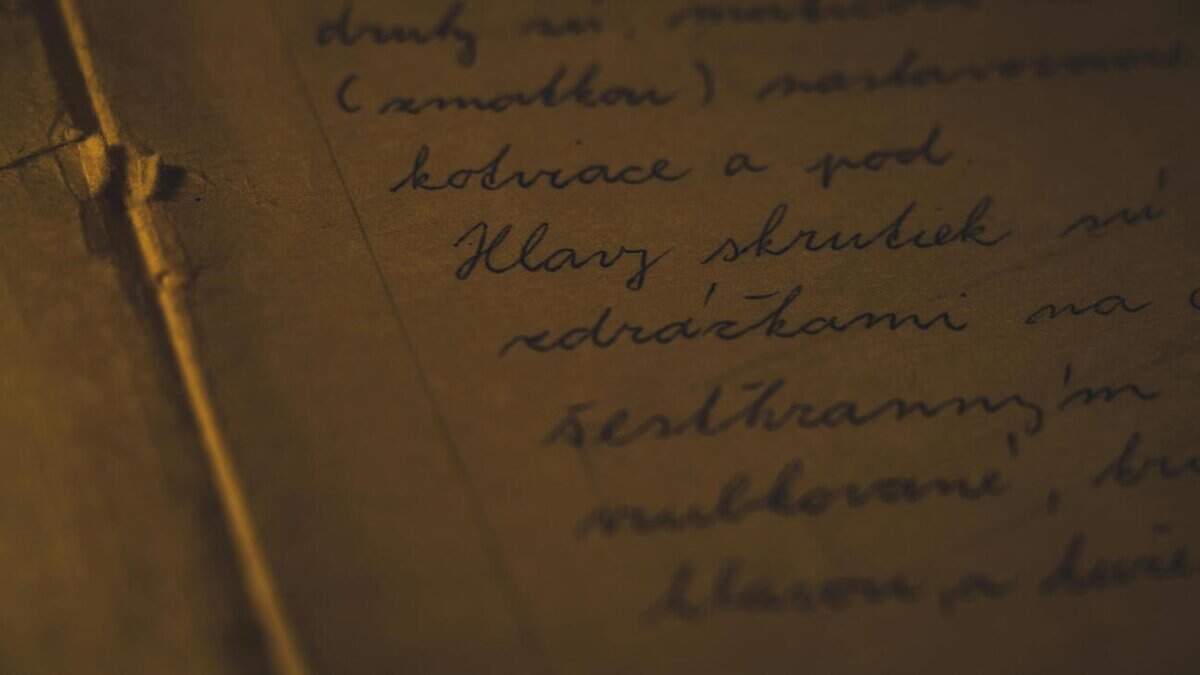 druhy sú,
(zmatkou)
kotviace a pod.
Hlavy skrutiek sú
zdrážkami na
šesťhranným
vrubkované,
hlavou, a